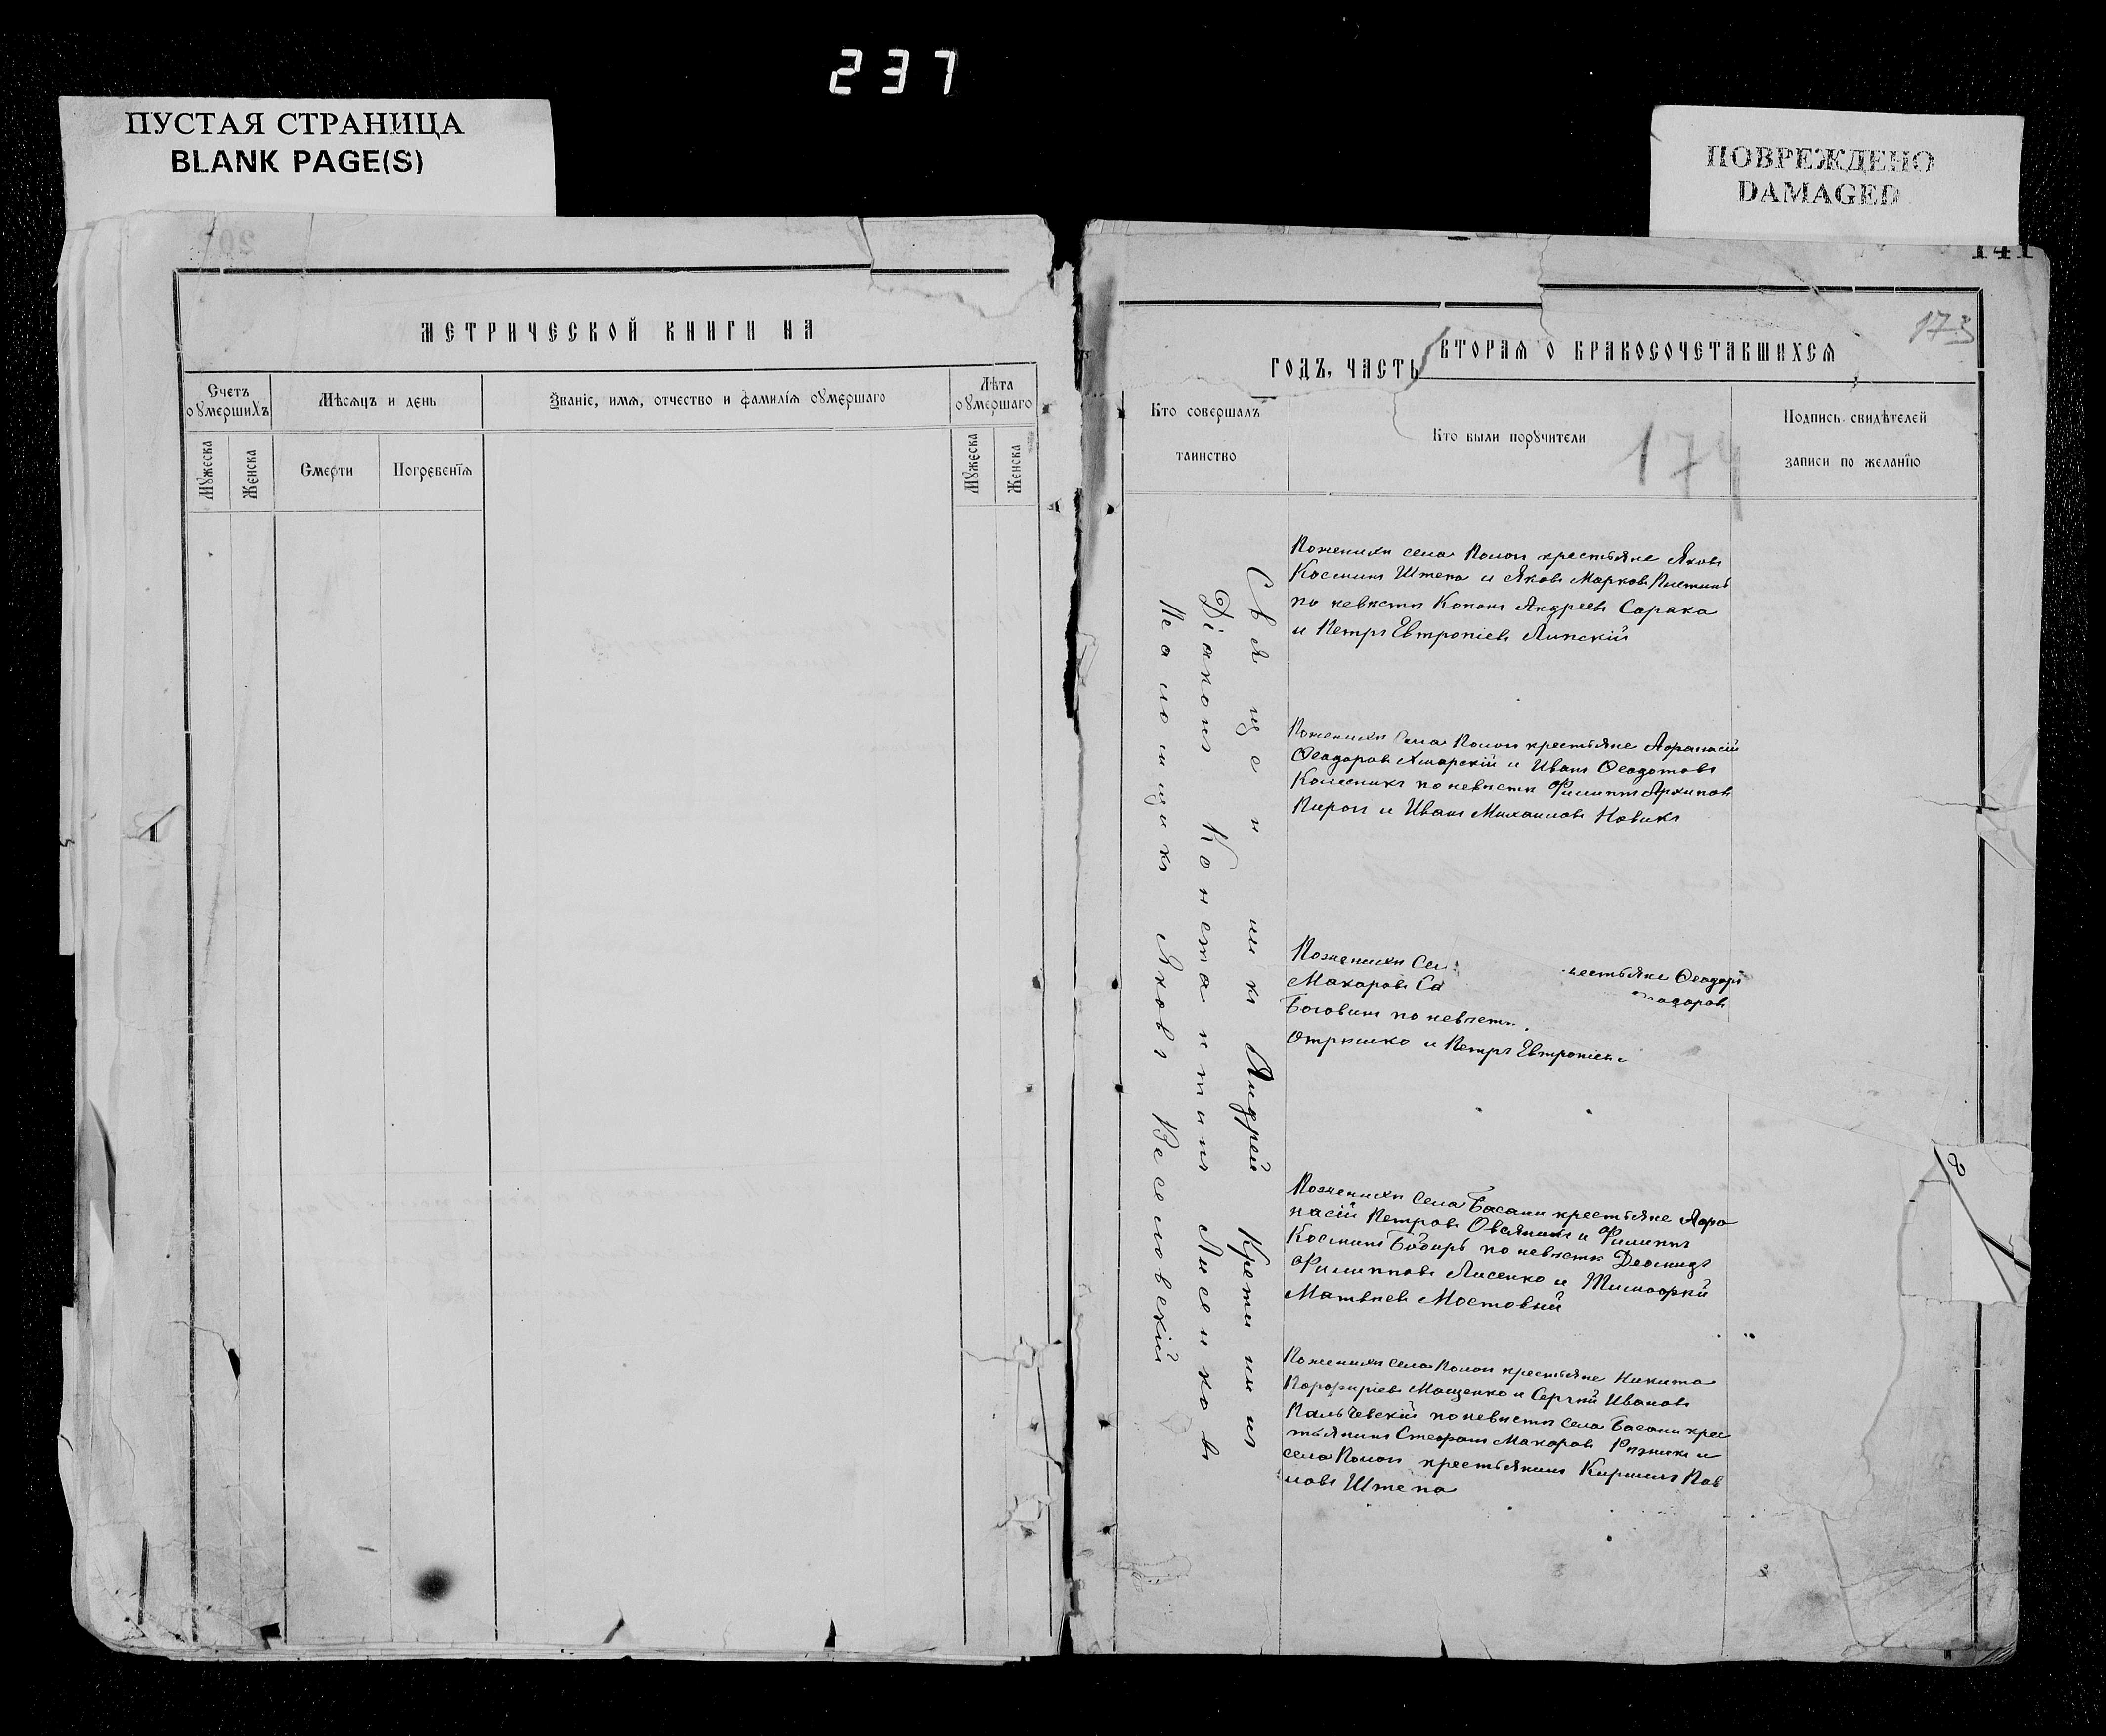 237
ПУСТАЯ СТРАНИЦА
BLANK PAGE(S)
ПОВРЕЖДЕНО
DAMAGED
МЕТРИЧЕСКОЙ КНИГИ НА
Счетъ оумершихъ
Мѣсяцъ и день
Званіе, имя, отчество и фамилія оумершаго
Лѣта оумершаго
Мужеска
Женска
Смерти
Погребенія
Мужеска
Женска
141
173
ГОДЪ, ЧАСТЬ ВТОРАЯ О БРАКОСОЧЕТАВШИХСЯ
Кто совершалъ таинство
Кто были поручители
174
Подпись свидѣтелей записи по желанію
Священникъ Андрей
Діаконъ Константинъ Лисенковъ
Псаломщикъ Яковъ Веселовскій
По женихѣ села Пологъ крестьяне Яковъ
Косминъ Штепа и Яковъ Марковъ
по невѣстѣ Кононъ Андреевъ Сорока
и Петръ Евтропіевъ Липскій
По женихѣ села Пологъ крестьяне Афанасій
Феодоровъ Хмарскій и Иванъ Феодотовъ
Колесникъ по невѣстѣ Филиппъ Архиповъ
и Иванъ Михаиловъ Новикъ
По женихѣ Се рестьяне Феодоръ
Макаровъ Са одоровъ
по невѣстѣ
Отрѣшко и Петръ Евтропіевъ
По женихѣ села Басани крестьяне Афа
насій Петровъ Овсяникъ и Филиппъ
Косминъ Бобырь по невѣстѣ Деомидъ
Филипповъ Лисенко и Тимофей
Матвѣевъ Мостовый
По женихѣ села Пологъ крестьяне Никита
Порфиріевъ Мащенко и Сергій Ивановъ
Пальчевскій по невѣстѣ села Басани крес
тьянинъ Стефанъ Макаровъ Рѣзникъ и
села Пологъ крестьянинъ Кириллъ Пав
ловъ Штепа